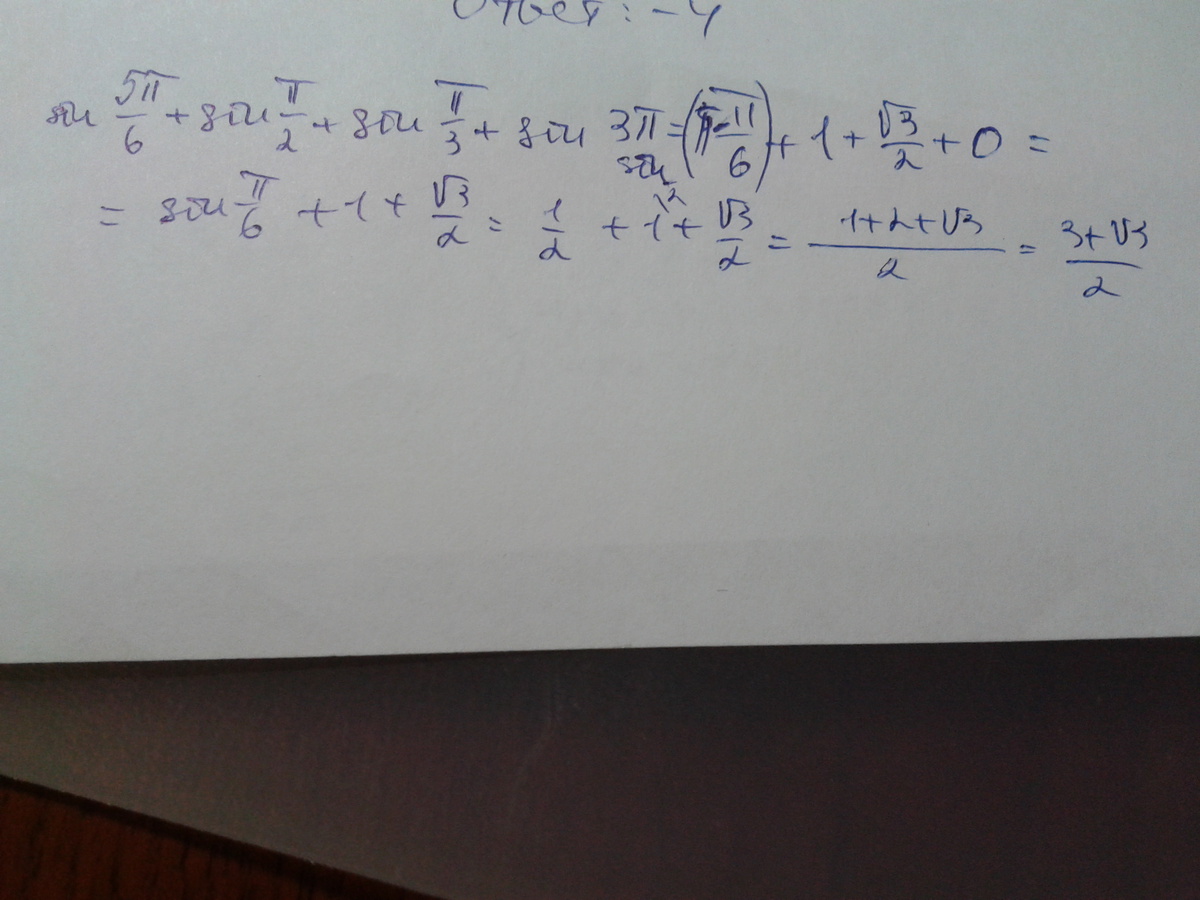 Ответ: -4
sin 5π/6 + sin π/2 + sin π/3 + sin 3π = sin(π - π/6) + 1 + √3/2 + 0 =
= sin π/6 + 1 + √3/2 = 1/2 + 1\2 + √3/2 = (1+2+√3)/2 = (3+√3)/2